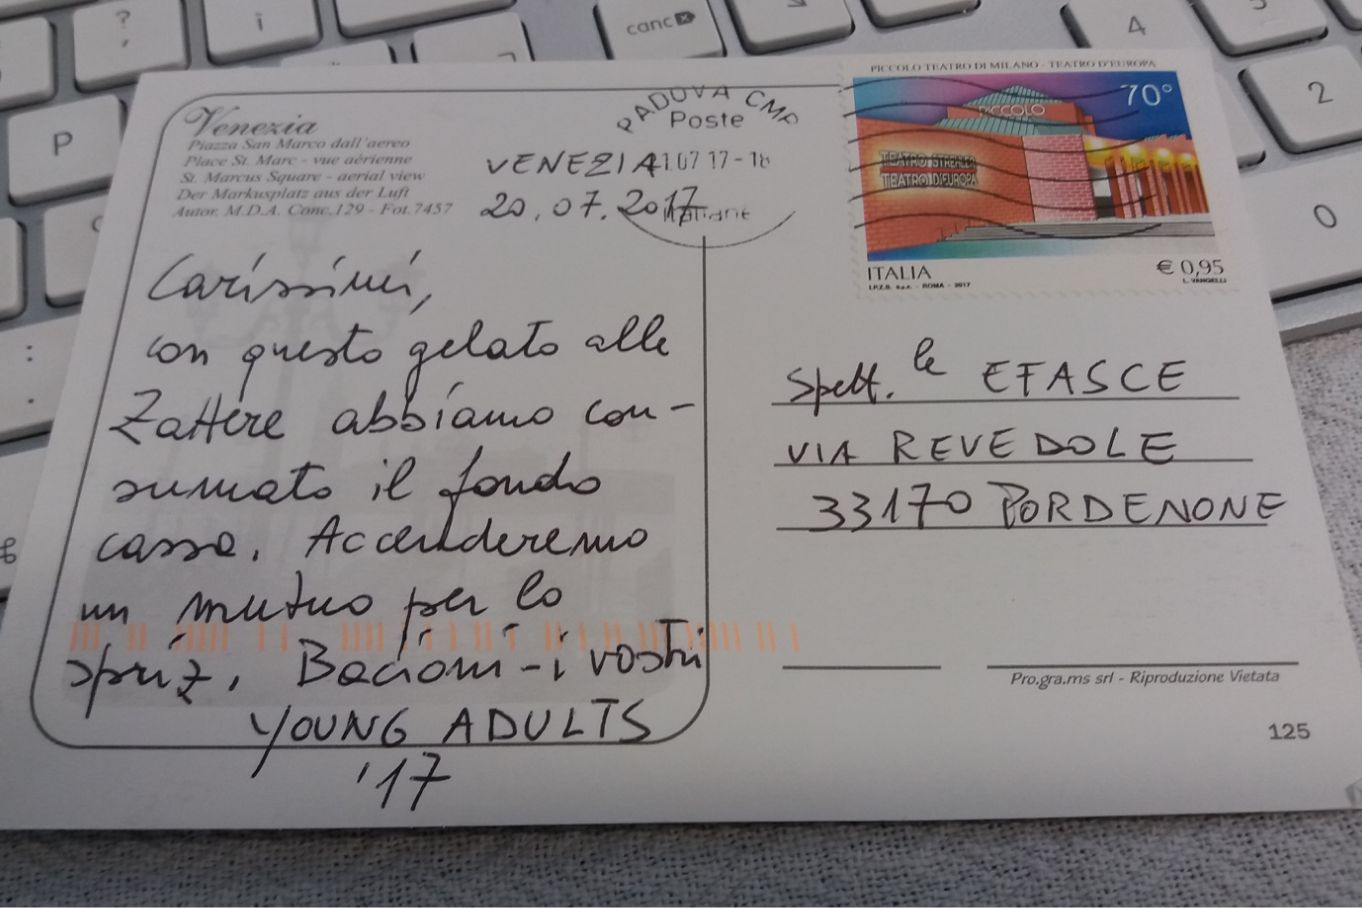 canc
P
4
2
0
Venezia
Piazza San Marco dall'aereo
Place St. Marc - vue aérienne
St. Marcus Square - aerial view
Der Markusplatz aus der Luft
Autor. M.D.A. Conc.129 - Fot.7457
PADOVA CMP
Poste
21.07 17-18
Italiane
VENEZIA
20.07.2017
Carissimi,
con questo gelato alle
Zattere abbiamo con-
sumato il fondo
cassa. Accenderemo
un mutuo per lo
spriz. Bacioni - i vostri
YOUNG ADULTS
'17
PICCOLO TEATRO DI MILANO - TEATRO D'EUROPA
70°
PICCOLO
TEATRO STREHLER
TEATRO D'EUROPA
ITALIA
€ 0,95
I.P.Z.S. S.p.A. - ROMA - 2017
L. VANGELLI
Spett.le EFASCE
VIA REVEDOLE
33170 PORDENONE
Pro.gra.ms srl - Riproduzione Vietata
125